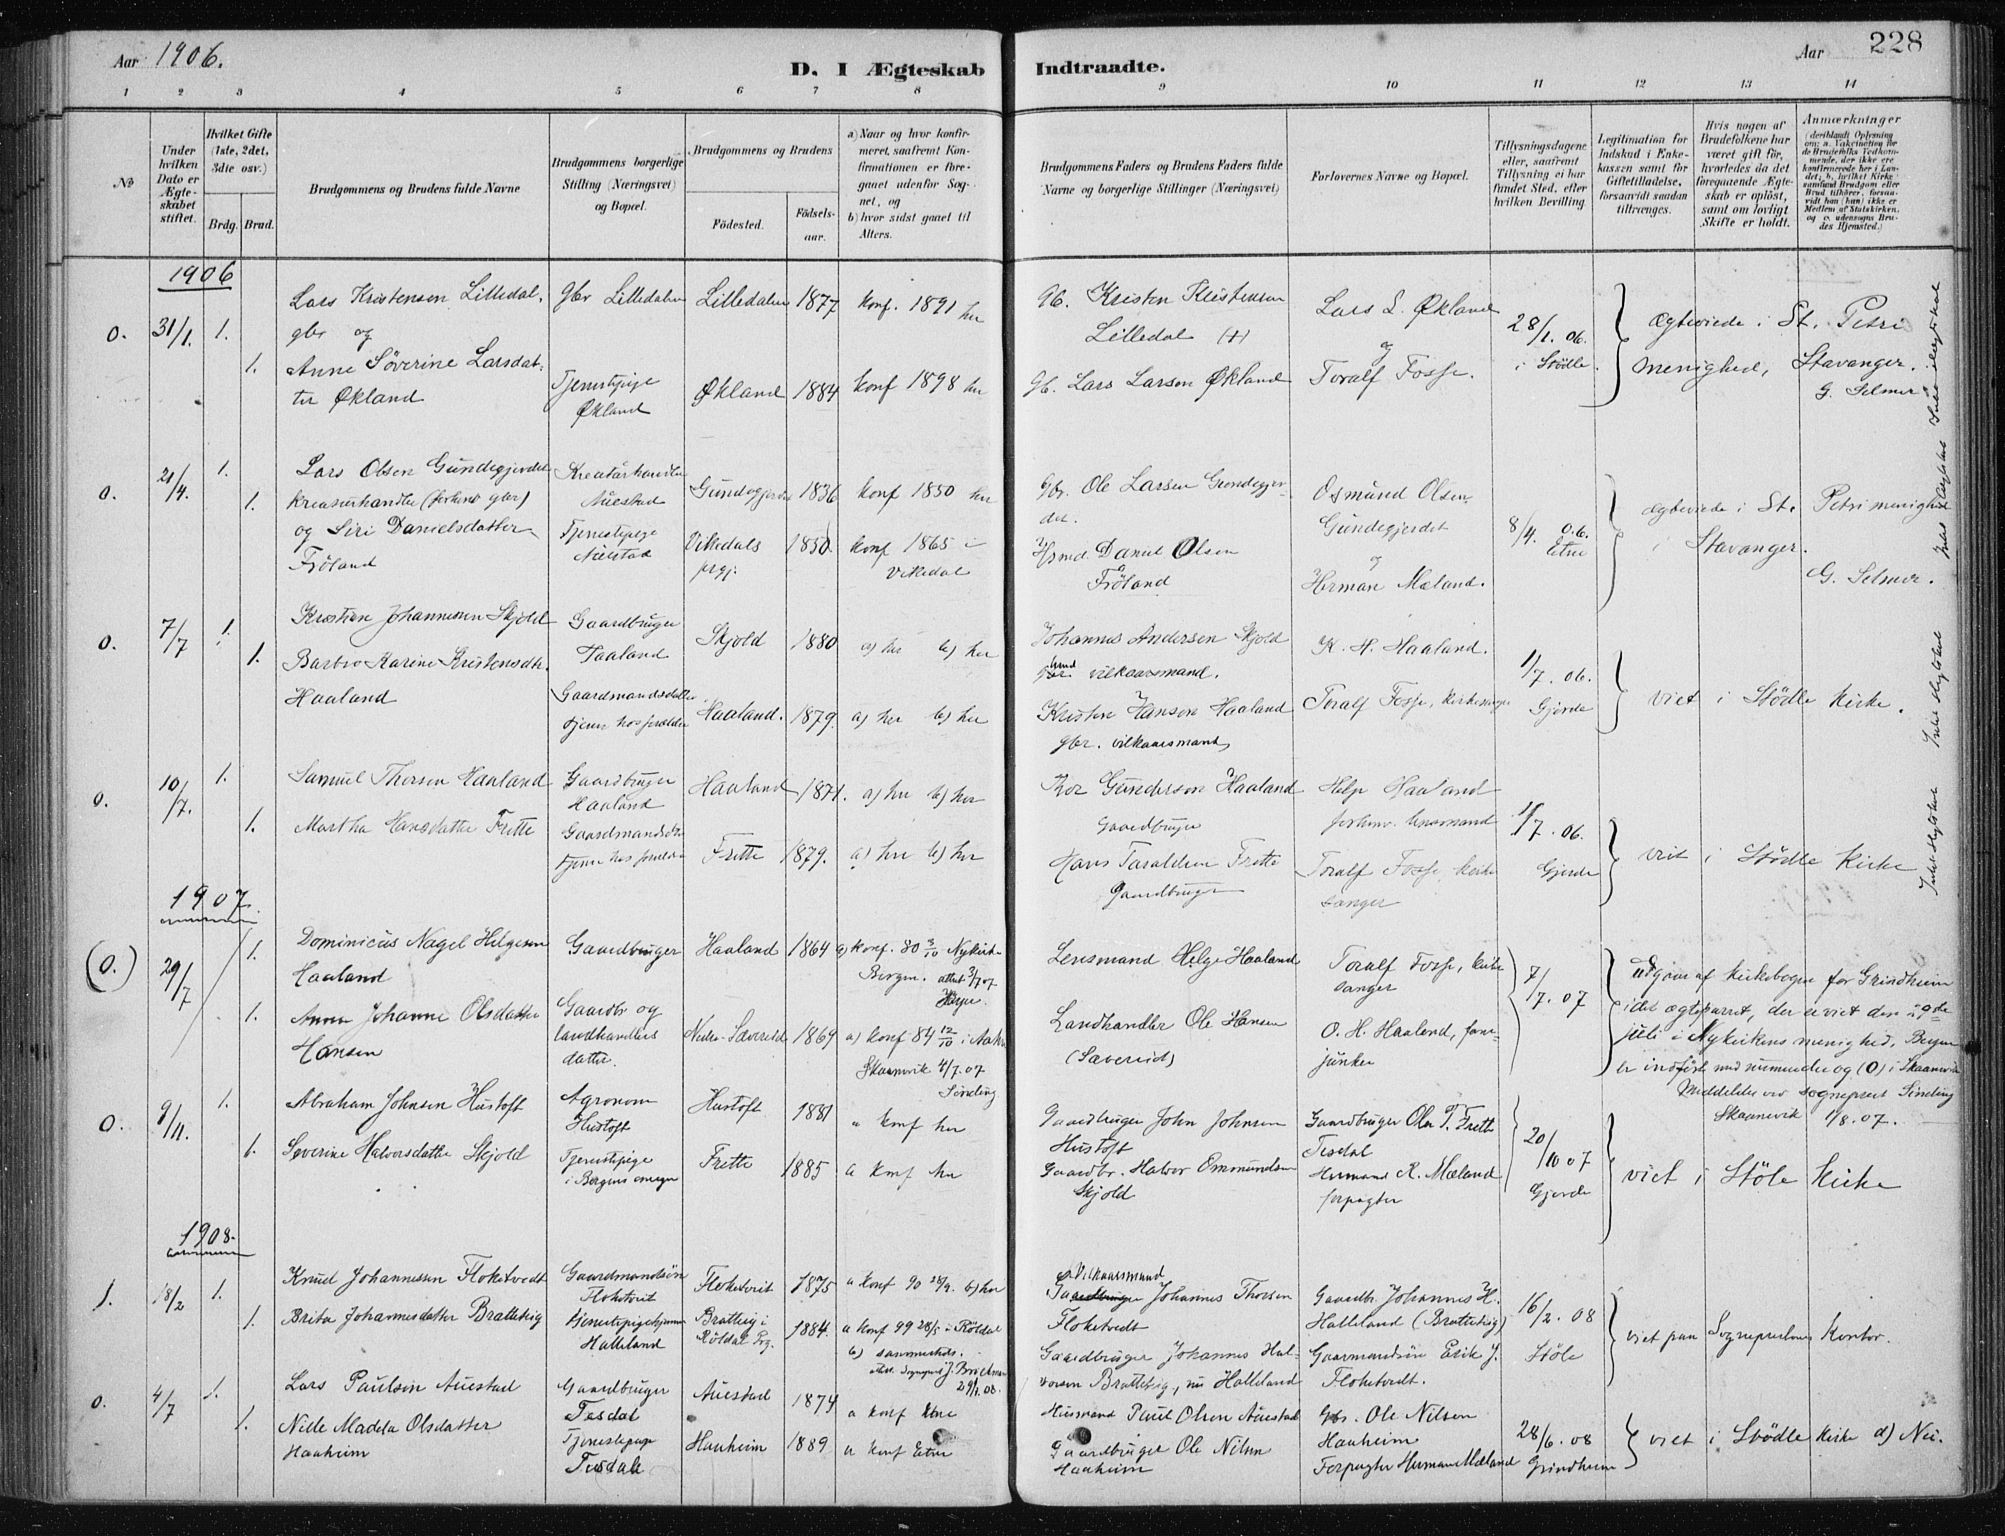 Aar 1906.
D. I Ægteskab Indtraadte.
Aar 228
1 2 3 4 5 6 7 8 9 10 11 12 13 14
No
Under hvilken Dato er Ægteskabet stiftet.
Hvilket Gifte (1ste, 2det, 3die osv.)
Brdg. Brud.
Brudgommens og Brudens fulde Navne
Brudgommens borgerlige Stilling (Næringsvei) og Bopæl.
Brudgommens og Brudens
Fødested.
Fødselsaar.
a) Naar og hvor konfirmeret, saafremt Konfirmationen er foregaaet udenfor Sognet, og
b) hvor sidst gaaet til Alters.
Brudgommens Faders og Brudens Faders fulde Navne og borgerlige Stillinger (Næringsvei)
Forlovernes Navne og Bopæl.
Tillysningsdagene eller, saafremt Tillysning ei har fundet Sted, efter hvilken Bevilling
Legitimation for Indskud i Enkekassen samt for Giftetilladelse, forsaavidt saadan tiltrænges.
Hvis nogen af Brudefolkene har været gift før, hvorledes da det foregaaende Ægteskab er opløst, samt om lovligt Skifte er holdt.
Anmærkninger
(deriblandt Oplysning om: a. Vakcination for de Brudefolks Vedkommende, der ikke ere konfirmerede her i Landet; b. hvilket Kirkesamfund Brudgom eller Brud tilhører, forsaavidt han (hun) ikke er Medlem af Statskirken, og c. udensogns Brudes Hjemsted.)
1906
0. 31/1. 1. Lars Kristensen Lilledal, gbr Lilledalen Lilledalen 1877 konf. 1891 her
gbr og
1. Anne Søverine Larsdatter Økland Tjenestepige Økland Økland 1884 konf 1898 her
Gb. Kristen Kristensen Lilledal (+)
Gb. Lars Larsen Økland
Lars L. Økland og Toralf Fosse.
28/1. 06. i Stødle.
ægteviede i St. Petri menighed, Stavanger.
G. Selmer
0. 21/4. 1. Lars Olsen Gundegjerdet Kreaturhandler Auestad 1836 konf 1850 her
kreaturhandler (forhenv gbr)
1. og Siri Danielsdatter Frøland Tjenestepige Vikedals prgj. 1850. konf 1865 i Vikedal
Gbr. Ole Larsen Gundegjerdet.
Husmd. Daniel Olsen Frøland
Osmund Olsen Gundegjerdet og Herman Mæland.
8/4. 06. Etne
ægteviede i St. Petri menighed i Stavanger.
G. Selmer.
0. 7/7 1. Kristian Johannessen Skjold Gaardbruger Haaland Skjold 1880 a) her b) her
1. Barbro Karine Kristensdtr. Haaland Gaardmandsdatter tjener hos forældre Haaland. 1879. a) her b) her
Johannes Andersen Skjold vilkaarsmand.
Kristen Hanson Haaland gbr. vilkaarsmand
K. H. Haaland.
Toralf Fosse, kirkesanger
1/7. 06. Gjerde
viet i Stødle kirke.
0. 10/7. 1. Samuel Thorsen Haaland Gaardbruger Haaland Haaland 1871. a) her b) her
1. Martha Hansdatter Frette Gaardmandsdtr tjener hos forældre Frette 1879. a) her b) her
Tor Gunderson Haaland Gaardbruger
Hans Taraldsen Frette Gaardbruger
Helge Haaland forhenv. lensmand
Toralf Fosse, kirkesanger
1/7. 06. Gjerde
viet i Stødle kirke
1907.
(0.) 29/7 1. Dominicus Nagel Helgesen Haaland Gaardbruger Haaland 1864 a) konf. 80 3/10 Nykirk. Bergen. attest 3/7 07
1. Anna Johanne Olsdatter Hansen Gaardbr og landhandlers datter. Nedre-Sævereid 1869 a) konf 84 12/10 i
Skaanevik 4/7. 07 Sinding
Lensmand Helge Haaland
Landhandler Ole Hansen (Sævereid)
Toralf Fosse, kirkesanger
O. H. Haaland, fanejunker
7/7. 07
udgaar af kirkebogen for Grindheim
idet ægteparret, der er viet den
juli i Nykirkens menighed, Bergen
er indført med nummer og (0) i Skaanevik
Meddelelse ved sogneprest Sinding
Skaanevik 1/8. 07.
0. 9/11. 1. Abraham Johnsen Hustoft Agronom Hustoft Hustoft 1881 a konf her
1. Severine Halvorsdatter Skjold Tjenestepige i Bergens omegn Frette 1885 a konf her
Gaardbruger John Johnsen Hustoft
Gaardbr. Halvor Emmundsen Skjold
Gaardbruger Ole T. Frette Tesdal
Hermand K. Mæland forpagter
20/10 07 Gjerde
viet i Støle kirke
1908.
1. 18/2 1. Knud Johannessen Floketvedt Gaardmandsøn Floketveit Floketveit 1875 a konf 90 28/9. b) her
1. Brita Johannesdatter Brattebig tjenestepige hjemme Halleland Brattebig i Røldal Prg. 1884. a konf 99 28/5 i Røldal
b) sammesteds.
29/1. 08.
Vilkaarsmand
Gaardbruger Johannes Thorsen Floketvedt
Gaardbruger Johannes Halvorsen Brattebig, nu Halleland
Gaardbr. Johannes H. Halleland (Brattebig)
Gaarmandsøn Erik J. Floketvedt.
16/2. 08 Støle
viet paa Sogneprestens Kontor.
0. 4/7 1. Lars Paulsen Auestad Gaardbruger Tesdal Auestad 1874 a konf Etne
1. Nille Madela Olsdatter Haaheim Tjenestepige Tesdal Haaheim 1889 a konf Etne
Husmand Paul Olsen Auestad
Gaardbruger Ole Nilsen Haaheim
Gbr. Ole Nilsen Haaheim
Forpagter Herman Mæland
28/6. 08 Grindheim
viet i Stødle kirke d) Nei.